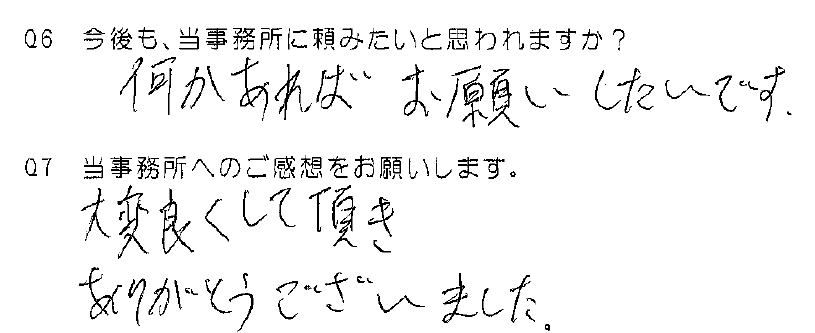 Q6 今後も、当事務所に頼みたいと思われますか？
何かあれば お願いしたいです.
Q7 当事務所へのご感想をお願いします。
大変良くして頂き
ありがとうございました。